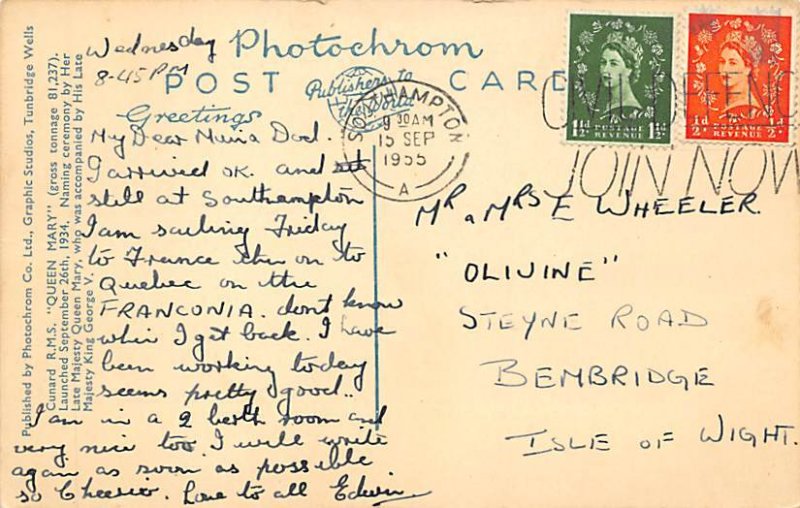 Published by Photochrom Co. Ltd., Graphic Studios, Tunbridge Wells
Cunard R.M.S. "QUEEN MARY" (gross tonnage 81,237).
Launched September 26th, 1934. Naming ceremony by Her
Late Majesty Queen Mary, who was accompanied by His Late
Majesty King George V.
Photochrom
POST CARD
Publishers to
the World
Greetings
Wednesday
8-45 PM
My Dear Mum & Dad.
I arrived OK. and
still at Southampton
I am sailing Friday
to France then on to
Quebec on the
FRANCONIA. dont know
when I get back. I have
been working today
seems pretty good..
I am in a 2 berth room and
very nice too. I will write
again as soon as possible
so Cheerio. Love to all Edwin
SOUTHAMPTON
9 30 AM
15 SEP
1955
A
CIVIL DEFENCE
JOIN NOW
1½d POSTAGE REVENUE 1½d
½d POSTAGE REVENUE ½d
MR & MRS E WHEELER.
"OLIVINE"
STEYNE ROAD
BEMBRIDGE
ISLE OF WIGHT.